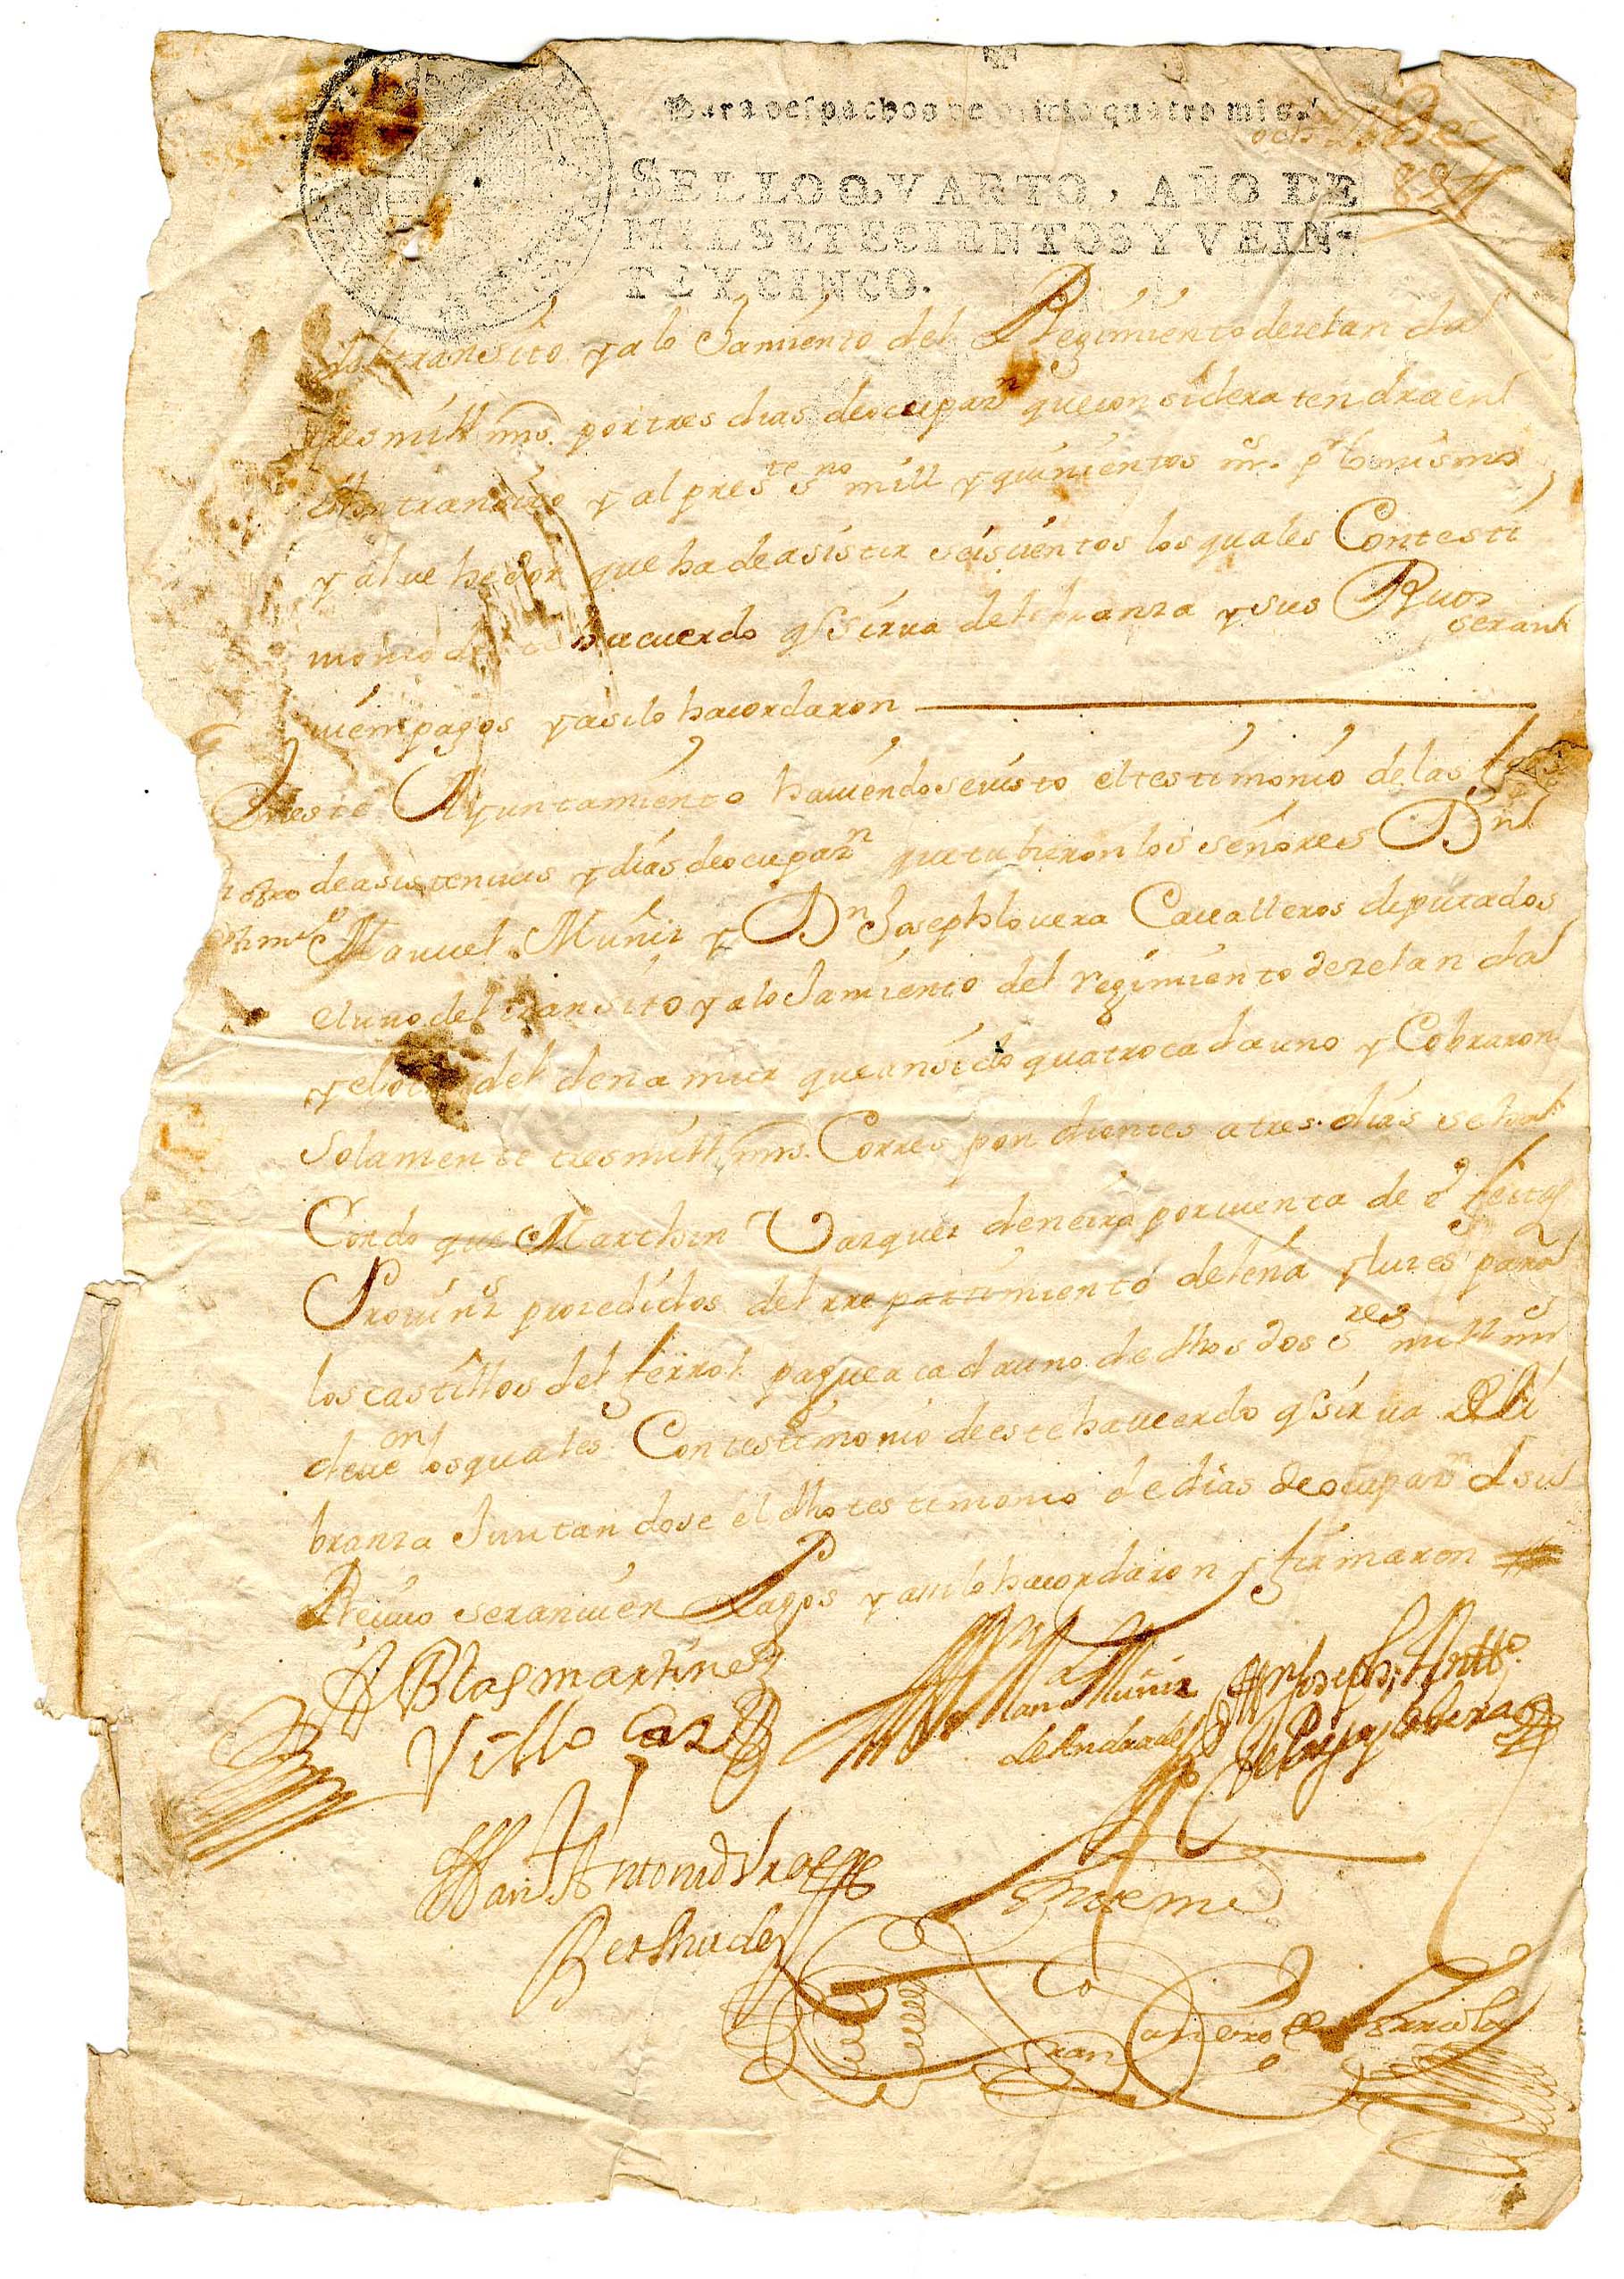 Para despachos de oficio quatro mrs.
SELLO QVARTO, AÑO DE
MIL SETECIENTOS Y VEIN-
TE Y CINCO.
del transito y alo Jamiento del Regimiento dezelanda
tres mill mrs. por tres dias deocupazn que considera tendra enl
dho transito y al preste sno mill y quinientos mrs. pr lo mismo
y al vehedor que ha de asistir seiscientos los quales Con testi
monio de este hacuerdo q sirua de libranza y sus Rvos
seran
vien pagos y asi lo hacordaron
En este Ayuntamiento haviendose visto el testimonio de las
de asistencias y dias deocupazn que tubieron los señores Dn
Manuel Muñiz y Dn Joseph lovera Cavalleros deputados
el uno del transito y alo Jamiento del regimiento dezelanda
y el otro del dena mur que an sido quatro cada uno y Cobraron
solamente tres mill mrs. Correspondientes a tres dias se ha
Cordo que Marthin Vazquez deneira por quenta de efectos
Prouinz prozedidos del rrepartimiento deleña y luzes para
los castillos del ferrol pague a cada uno de dhos dos sres mill mrs
de von los quales Con testimonio de este hacuerdo q sirua de li
branza Juntandose el dho testimonio de dias deocupazn d su
Reciuo seran vien Pagos y asi lo hacordaron y firmaron
Blas martinez
Villo
Dn Man Muñiz
de Andrade
Dn Joseph Antto
lobera
Juan Antonio
Bermudez
Anttemi
Fran